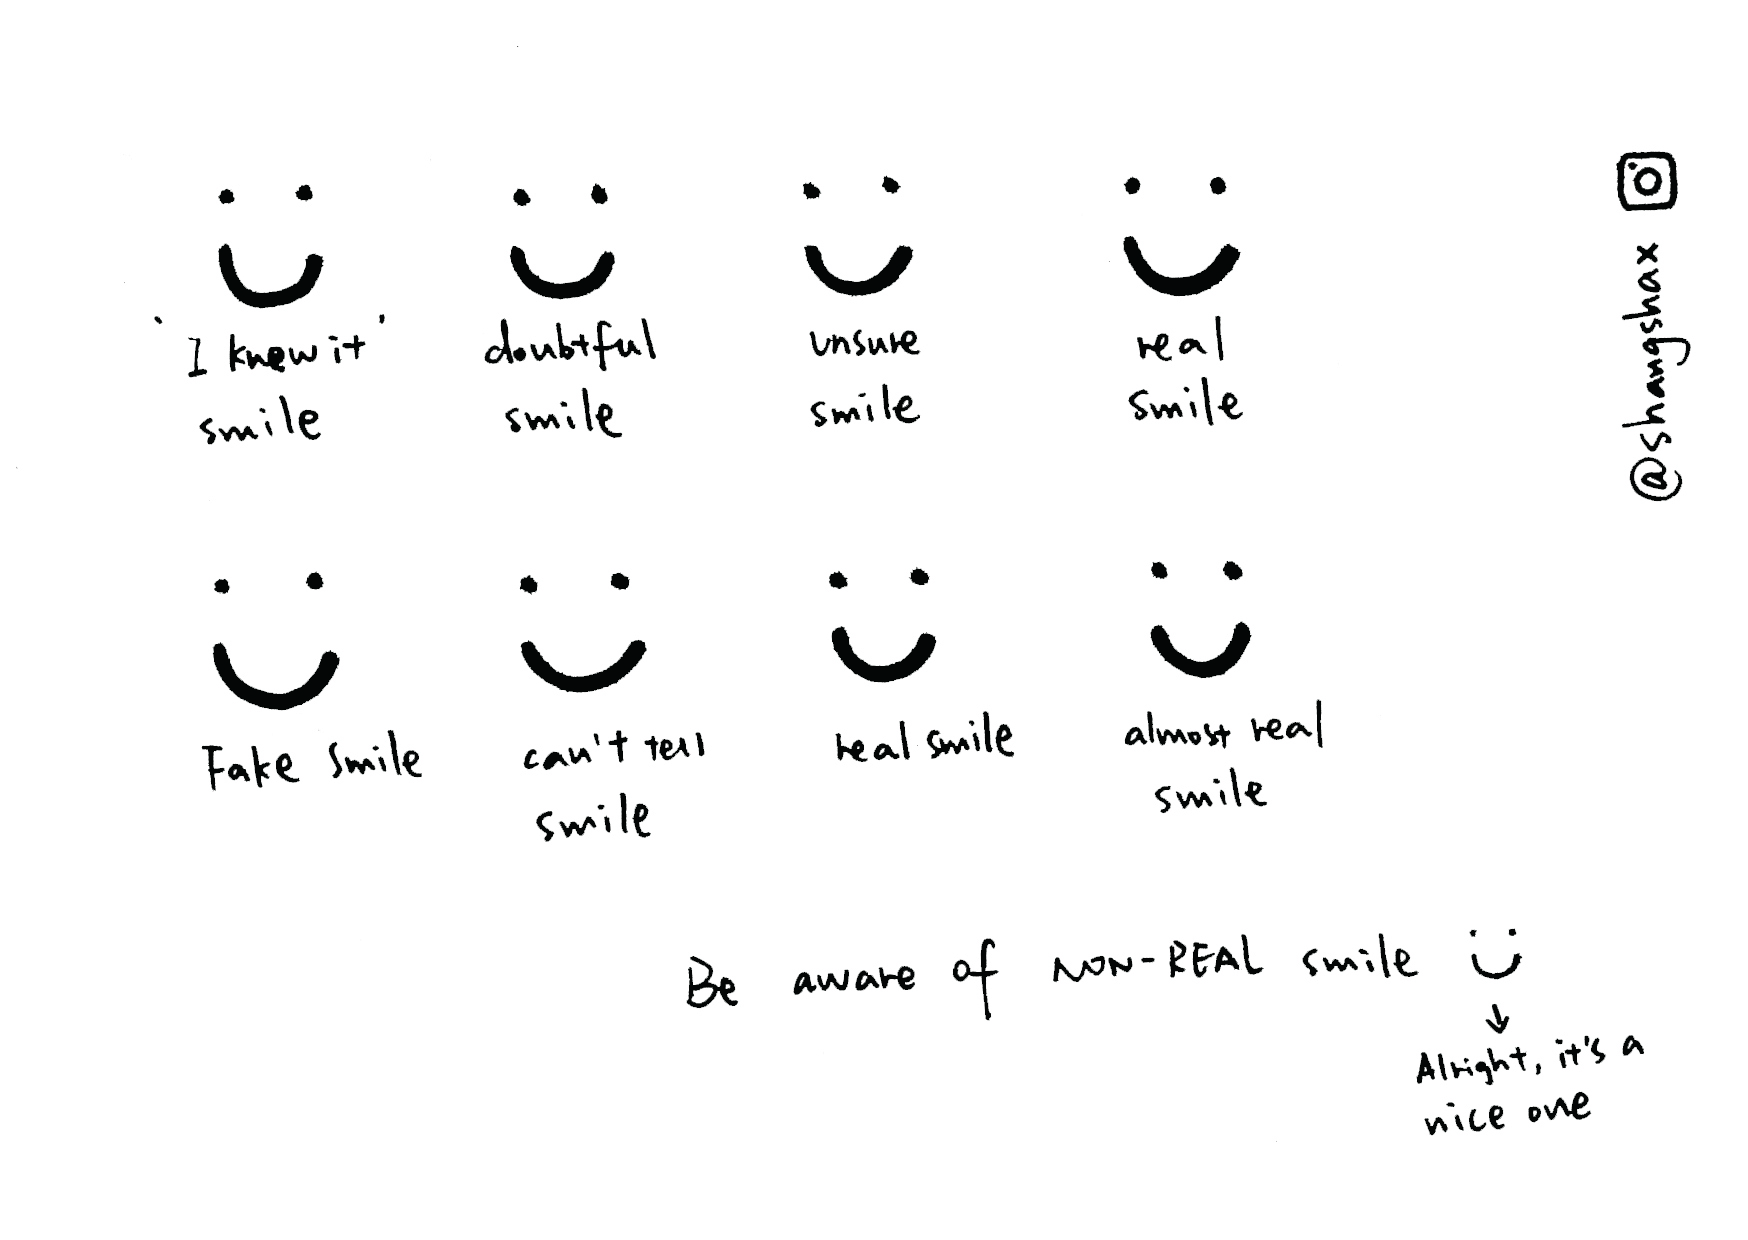 'I knew it'
smile
doubtful
smile
unsure
smile
real
smile
Fake smile
can't tell
smile
real smile
almost real
smile
Be aware of NON-REAL smile
Alright, it's a
nice one
@shangshax